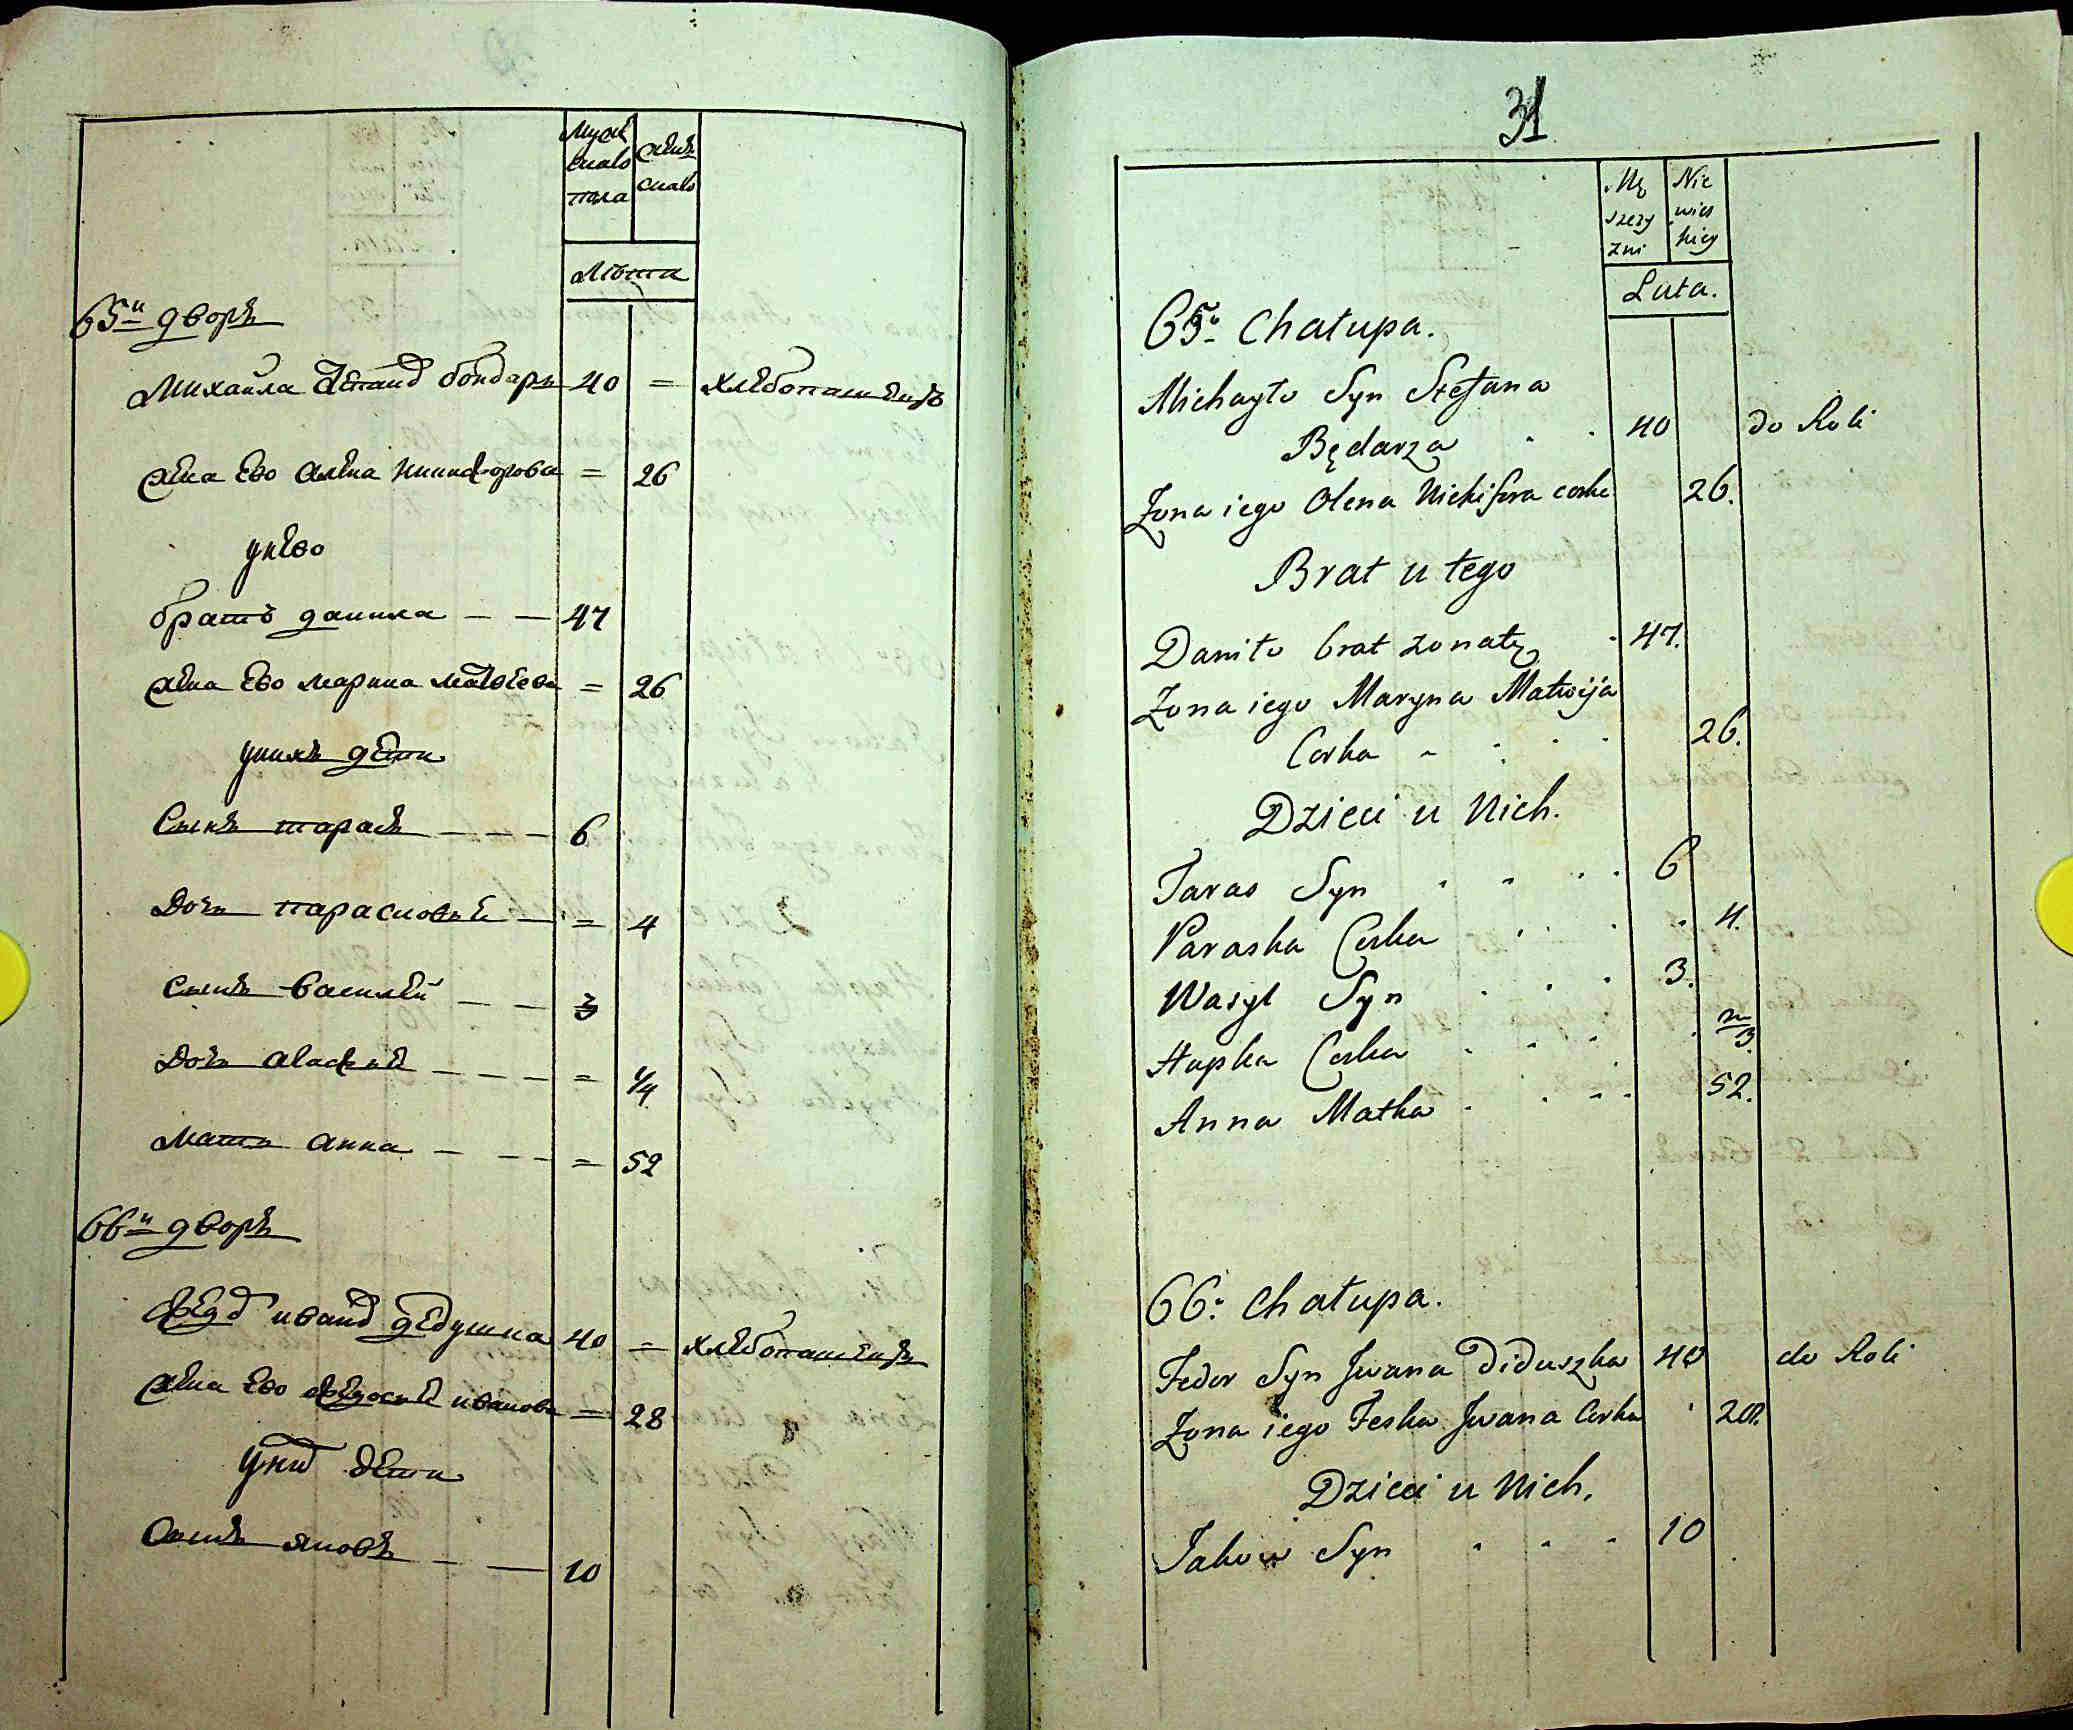 Муж
скаго
пола
Жен
скаго
Лѣта
65й дворъ
Михайла Степанов бондарь 40 = хлѣбопашецъ
Жена Ево Алена Никифорова = 26
у нево
братъ данила — — 47
Жена Ево марина матвѣева = 26
у нихъ дѣти
Сынъ тарасъ — — — 6
Дочь парасковья — = 4
Сынъ василей — — 3
Дочь — — — = 1/4
Мать анна — — — = 52
66й дворъ
Федор иванов дедушка 40 = хлѣбопашецъ
Жена Ево федосья иванова = 28
у них дети
Сынъ яковъ — — 10
31
Mę
szczy
zni
Nie
wies
kiey
Lata.
65. Chałupa.
Michayło Syn Stefana
Będarza . . 40 do Roli
Zona iego Olena Nickifora corka 26.
Brat u tego
Daniło brat zonaty . 47.
Zona iego Maryna Matwija
Corka . . . . 26.
Dzieci u Nich.
Taras Syn . . . . 6
Paraska Corka . . . . 4.
Wasyl Syn . . . 3.
Hapka Corka . . . . m/3.
Anna Matka . . . . 52.
66. Chałupa.
Fedor Syn Jwana Diduszka 40 do Roli
Zona iego Feska Jwana Corka . 28.
Dzieci u Nich.
Jakow Syn . . . 10